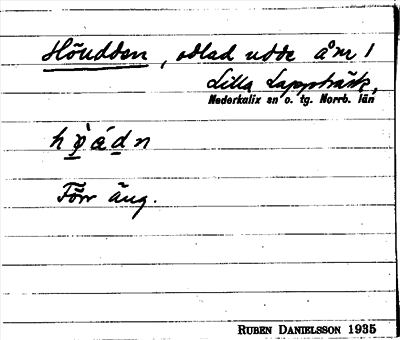 Höudden, odlad udde å nr 1
Lilla Lappträsk,
Nederkalix sn o. tg. Norrb. län
Förr äng.
RUBEN DANIELSSON 1935